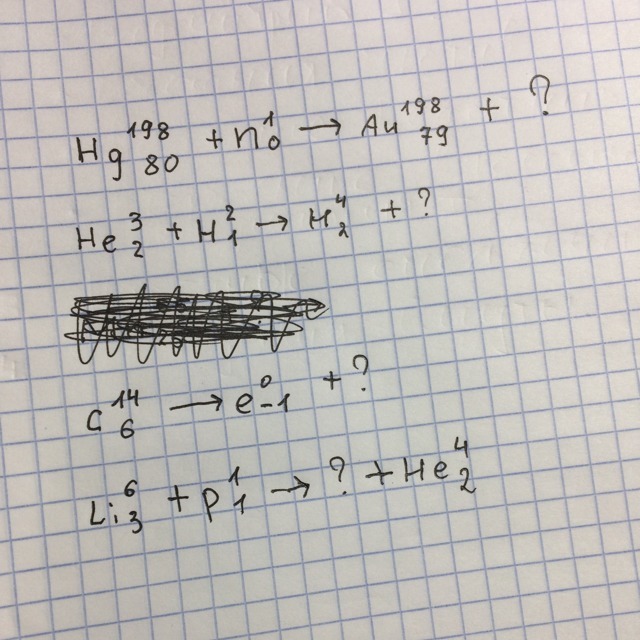 Hg¹⁹⁸₈₀ + n¹₀ → Au¹⁹⁸₇₉ + ?
He³₂ + H²₁ → H⁴₂ + ?
C¹⁴₆ → e⁰₋₁ + ?
Li⁶₃ + p¹₁ → ? + He⁴₂